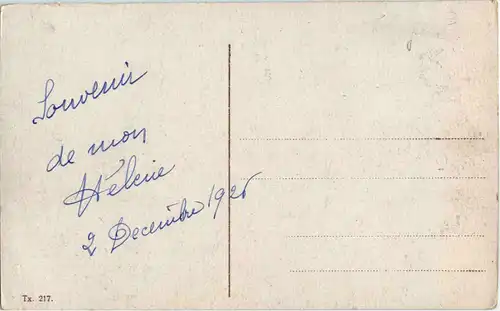 Souvenir
de mon
Hélène
2 Decembre 1926
Tx. 217.